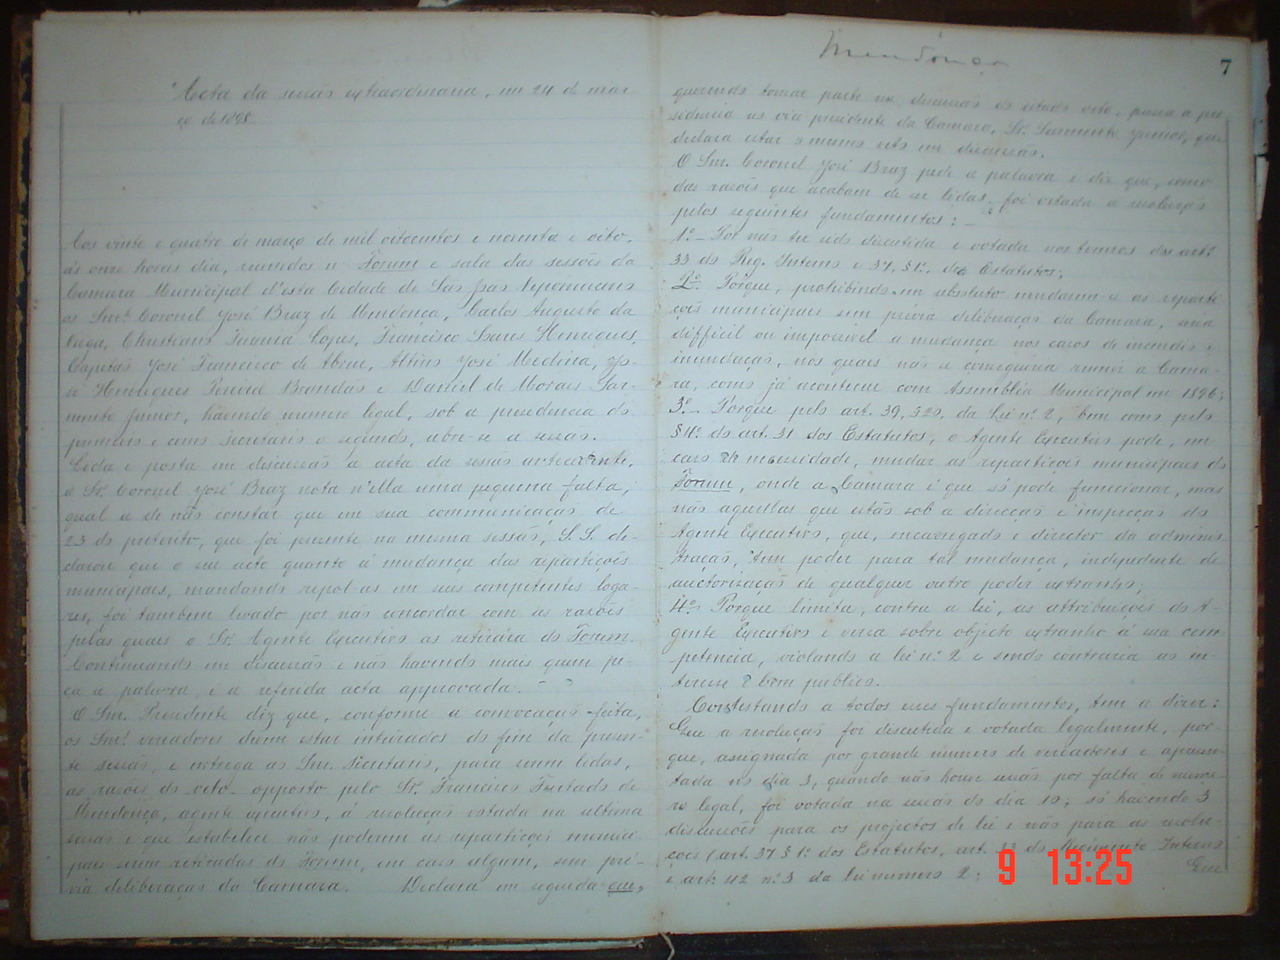 Acta da sessão extraordinaria, em 24 de mar-
ço de 1898
Aos vinte e quatro de março de mil oitocentos e noventa e oito,
ás onze horas dia, reunidos no Forum e sala das sessões da
Camara Municipal d'esta Cidade de São João Nepomuceno
os Snrs. Coronel José Braz de Mendonça, Carlos Augusto da
Veiga, Christiano Lopes, Francisco Soares Henriques,
Capitão José Francisco de Abreu, Altino José Medina, Jo-
sé Henriques Pereira Brandão e Daniel de Moraes Sar-
mento Junior, havendo numero legal, sob a presidencia do
primeiro e como secretario o segundo, abre-se a sessão.
Lida e posta em discussão a acta da sessão antecedente,
o Sr. Coronel José Braz nota n'ella uma pequena falta,
qual a de não constar que em sua communicação de
23 do preterito, que foi presente na mesma sessão, S. S. de-
clarou que o seu acto quanto á mudança das repartições
municipaes, mandando repol-as em seus competentes loga-
res, foi tambem levado por não concordar com as razões
pelas quaes o Sr. Agente Executivo as retirára do Forum.
Continuando em discussão e não havendo mais quem pe-
ça a palavra, é a referida acta approvada.
O Snr. Presidente diz que, conforme a convocação feita,
os Snrs. vereadores devem estar inteirados do fim da presen-
te sessão, e entrega ao Snr. Secretario, para serem lidas,
as razões do veto opposto pelo Sr. Francisco Furtado de
Mendonça, agente executivo, á resolução votada na ultima
sessão e que estabelece não poderem as repartições munici-
paes serem retiradas do Forum, em caso algum, sem pré-
via deliberação da Camara. Declara em seguida que,
Mendonça
7
querendo tomar parte na discussão do citado veto, passa a pre-
sidencia ao vice presidente da Camara, Sr. Sarmento Junior, que
declara estar o mesmo veto em discussão.
O Snr. Coronel José Braz pede a palavra e diz que, como
das razões que acabam de ser lidas, foi vetada a resolução
pelos seguintes fundamentos: -
1º - Por não ter sido discutida e votada nos termos do artº
33 do Reg. Interno e 37, § 1º, dos Estatutos;
2º Porque, prohibindo em absoluto mudarem-se as reparti-
ções municipaes sem previa deliberação da Camara, seria
difficil ou impossivel a mudança nos casos de incendio e
inundação, nos quaes não se conseguiria reunir a Cama-
ra, como já aconteceu com Assembléa Municipal em 1896;
3º - Porque pelo art. 39, § 20, da Lei nº 2, bem como pelo
§ 4º do art. 31 dos Estatutos, o Agente Executivo pode, em
caso de necessidade, mudar as repartições municipaes do
Forum, onde a Camara é que só pode funccionar, mas
não aquellas que estão sob a direcção e inspecção do
Agente Executivo, que, encarregado e director da adminis-
tração, tem poder para tal mudança, independente de
auctorisação de qualquer outro poder extranho;
4º - Porque limita, contra a lei, as attribuições do A-
gente Executivo e versa sobre objecto extranho á sua com-
petencia, violando a lei nº 2 e sendo contraria ao in-
teresse e bem publico.
Contestando a todos esses fundamentos, tem a dizer:
Que a resolução foi discutida e votada legalmente, por-
que, assignada por grande numero de vereadores e apresen-
tada no dia 3, quando não houve sessão por falta de nume-
ro legal, foi votada na sessão do dia 10; só havendo 3
discussões para os projectos de lei e não para as resolu-
ções (art. 37 § 1º dos Estatutos, art. 33 do Regimento Interno
e art. 42 nº 3 da lei numero 2;
Que
9 13:25